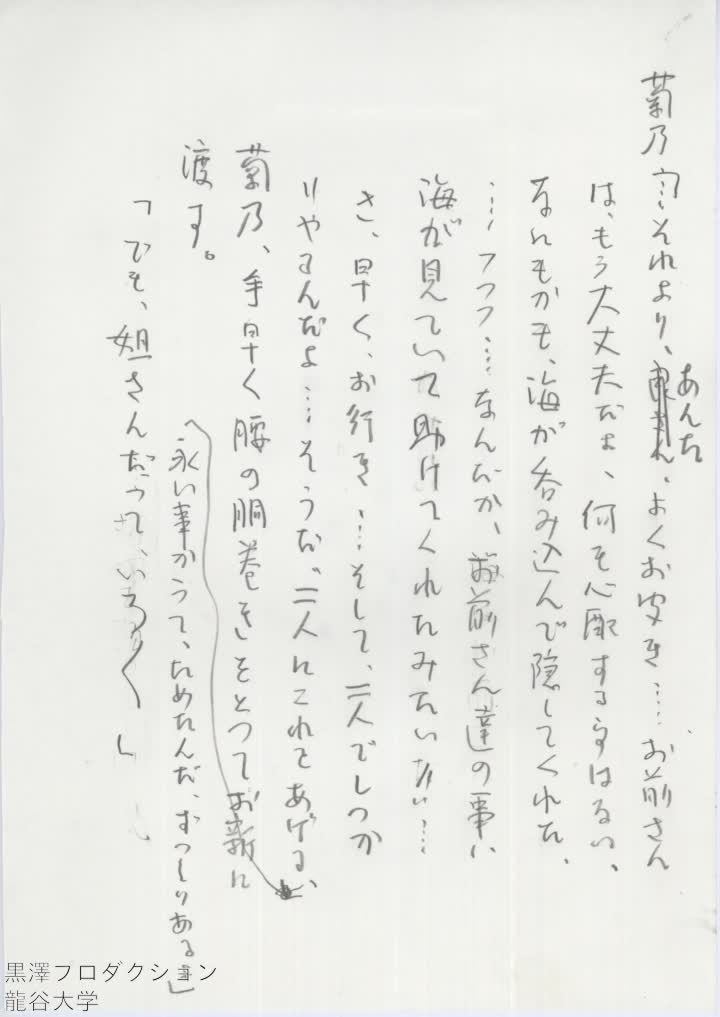 菊乃「…それより、あんた、よくお聞き…お前さん
は、もう大丈夫だよ、何も心配する事はない、
なにもかも、海が呑み込んで隠してくれた、
…フフフ…なんだか、お前さん達の事、
海が見ていて助けてくれたみたい…
さ、早く、お行き…そして、二人でしっか
りやるんだよ…そうだ、二人にこれをあげる、
菊乃、手早く腰の胴巻きをとってお新に
渡す。
永い事かかって、ためたんだ、ずっしりあるよ」
「でも、姐さんだって、いろ〱」
黒澤プロダクション
龍谷大学